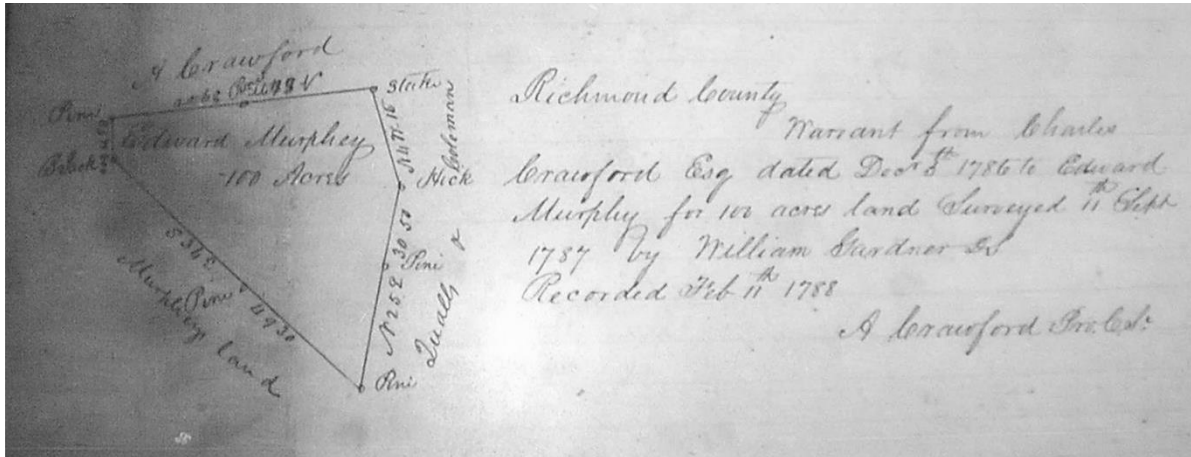 A Crawford
Pine
Stake
Edward Murphey
100 Acres
Hick
Coleman
Qualls &
Pine
N 25 E
30 50
S 36 E
Pine
49 30
Murpheys land
Pine
Richmond County
Warrant from Charles
Crawford Esq dated Decr 5th 1786 to Edward
Murphy for 100 acres land Surveyed 11th Sept
1787 by William Gardner DS
Recorded Feb 11th 1788
A Crawford Pro. C.S.